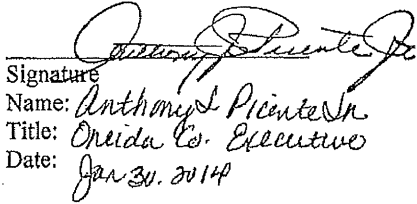 Anthony J Picente Jr
Signature
Name: Anthony J Picente Jr
Title: Oneida Co. Executive
Date: Jan 30. 2014